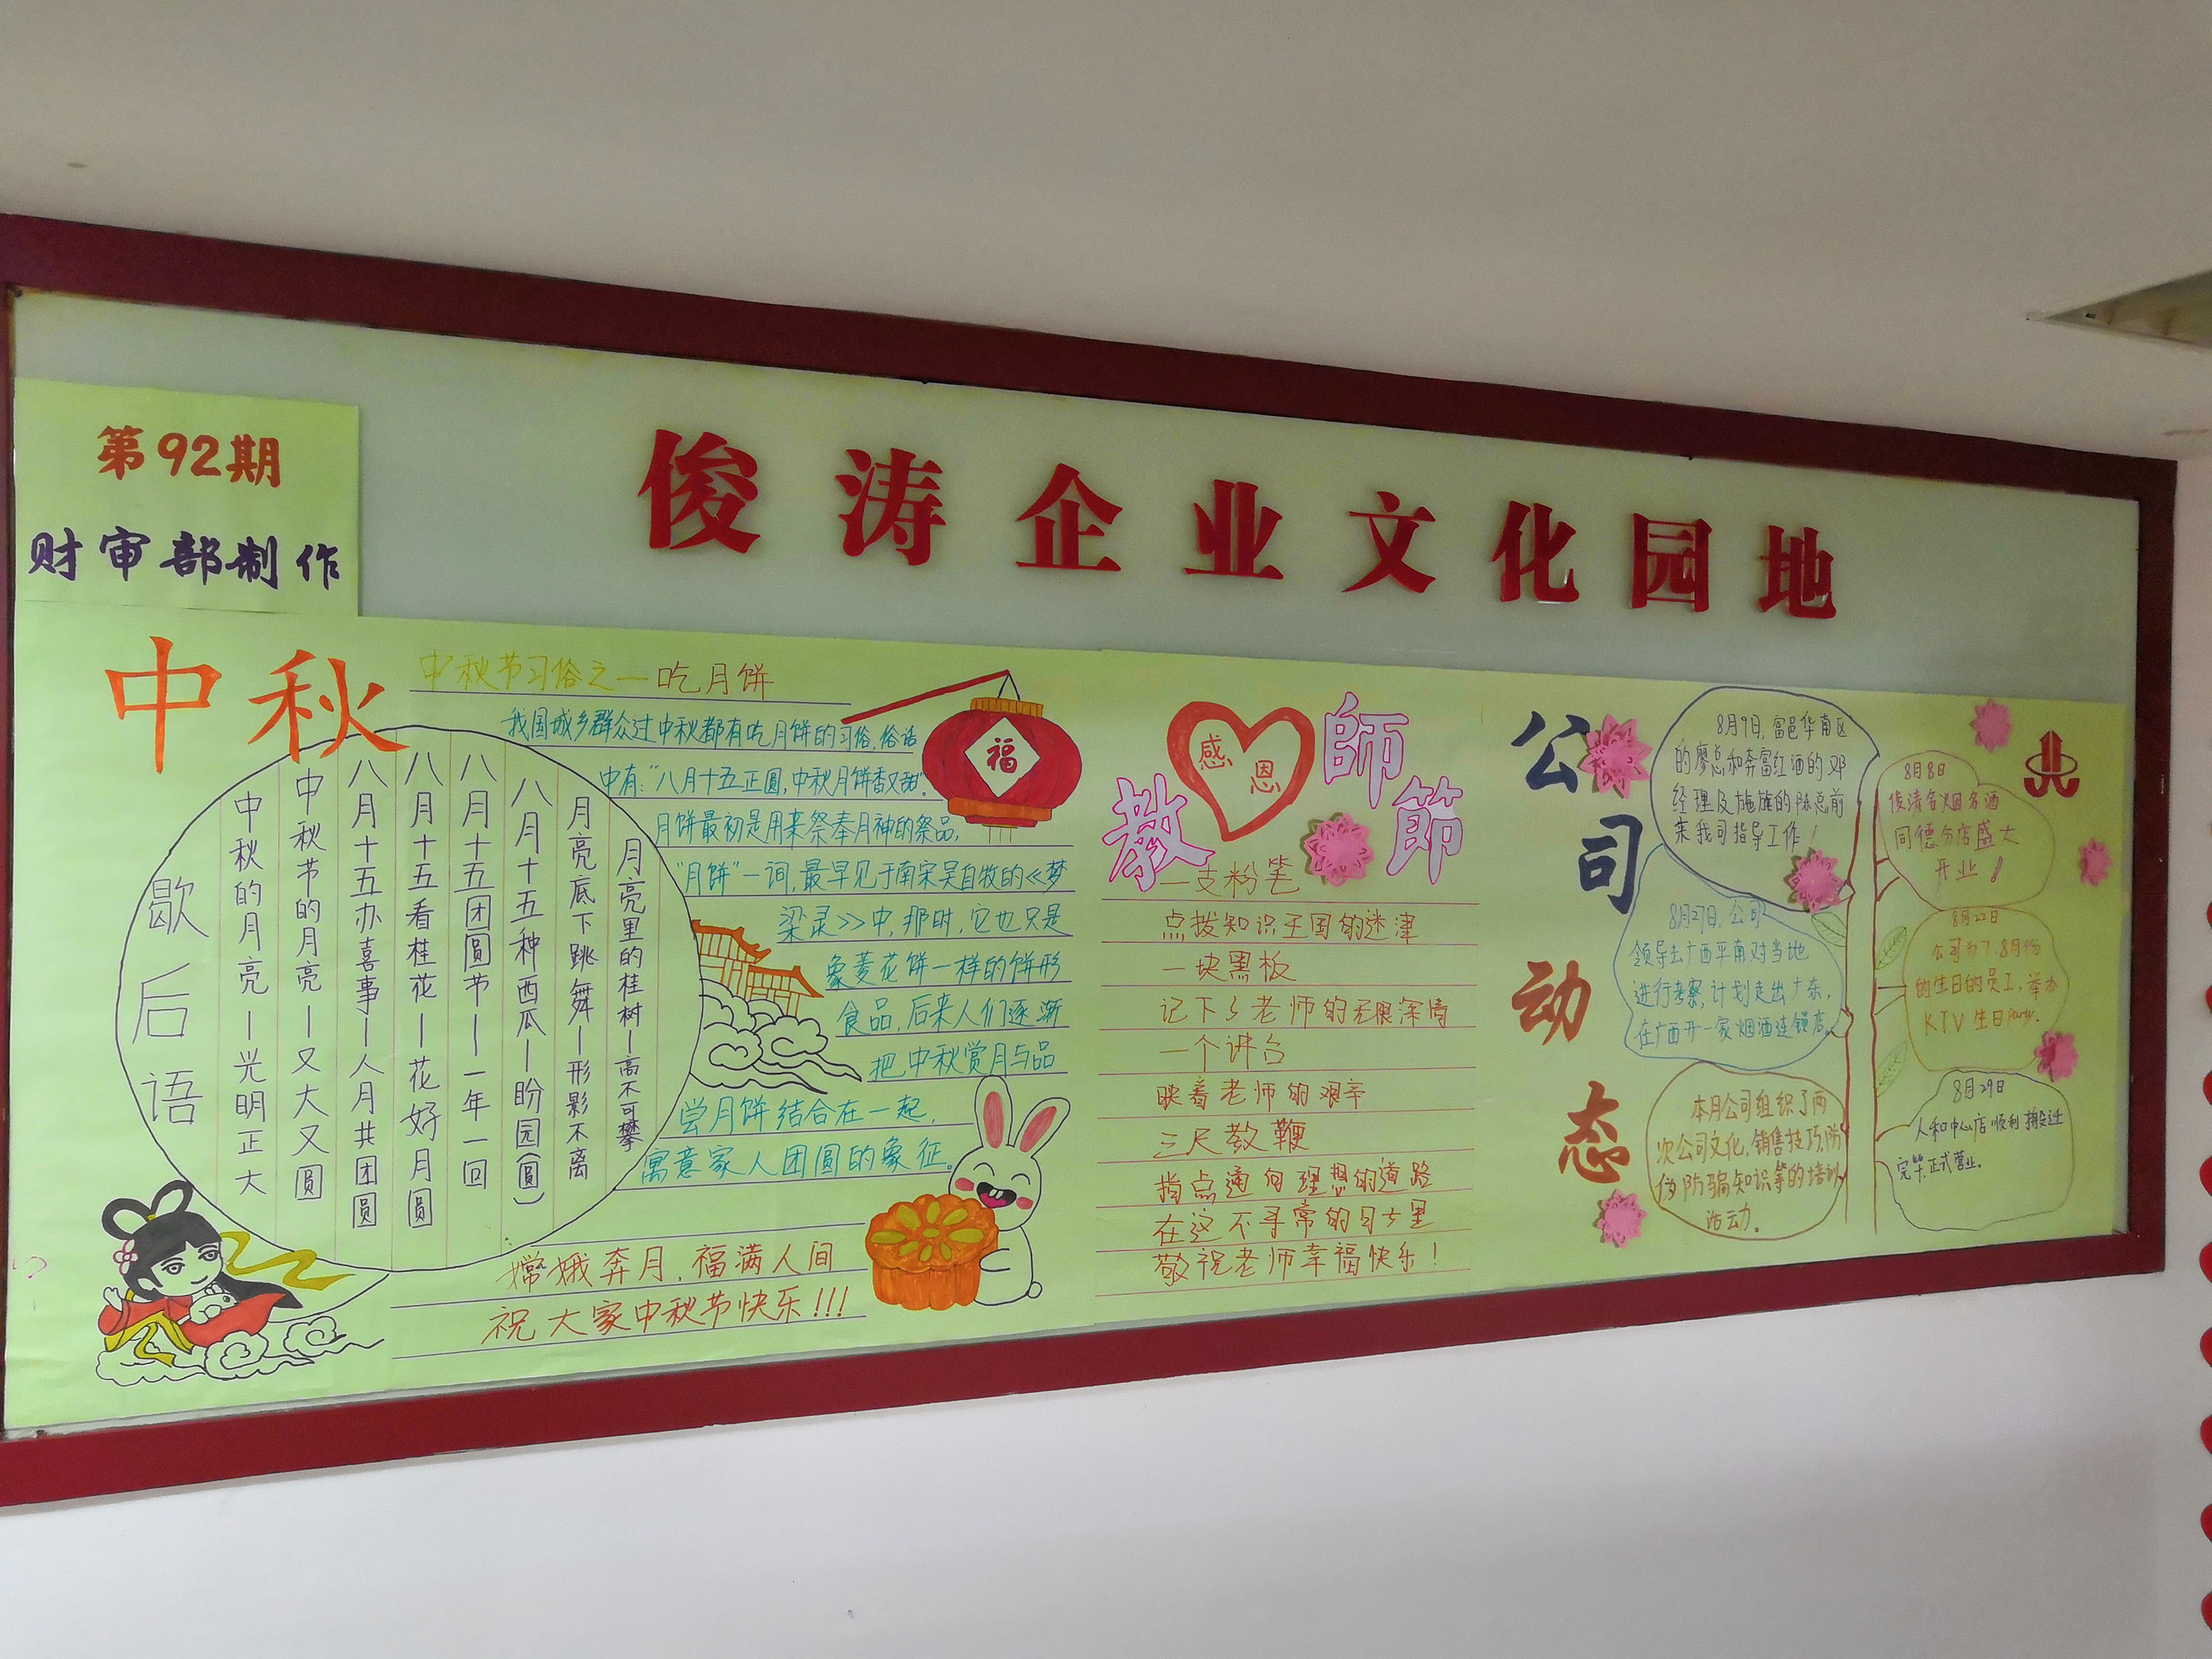 俊涛企业文化园地
第92期
财审部制作
中秋
歇后语
中秋的月亮—光明正大
中秋节的月亮—又大又圆
八月十五办喜事—人月共团圆
八月十五看桂花—花好月圆
八月十五团圆节—一年一回
八月十五种西瓜—盼园(圆)
月亮底下跳舞—形影不离
月亮里的桂树—高不可攀
中秋节习俗之一吃月饼
我国城乡群众过中秋都有吃月饼的习俗,俗话
中有:“八月十五正圆,中秋月饼香又甜”.
月饼最初是用来祭奉月神的祭品,
“月饼”一词,最早见于南宋吴自牧的《梦
梁录》中,那时,它也只是
象菱花饼一样的饼形
食品,后来人们逐渐
把中秋赏月与品
尝月饼结合在一起,
寓意家人团圆的象征。
嫦娥奔月,福满人间
祝大家中秋节快乐!!!
福
感恩
教師節
一支粉笔
点拨知识王国的迷津
一块黑板
记下了老师的无限深情
一个讲台
映着老师的艰辛
三尺教鞭
指点通向理想的道路
在这不寻常的日子里
敬祝老师幸福快乐!
公司动态
8月9日,富邑华南区
的廖总和奔富红酒的邓
经理及施施的陈总前
来我司指导工作!
8月27日,公司
领导去广西平南对当地
进行考察,计划走出广东,
在广西开一家烟酒连锁店。
本月公司组织了两
次公司文化,销售技巧,防
伪防骗知识等的培训
活动。
8月8日
俊涛名烟名酒
同德分店盛大
开业!
8月22日
公司为7.8月份
的生日的员工,举办
KTV生日party.
8月29日
人和中心店顺利搬迁
完毕.正式营业.